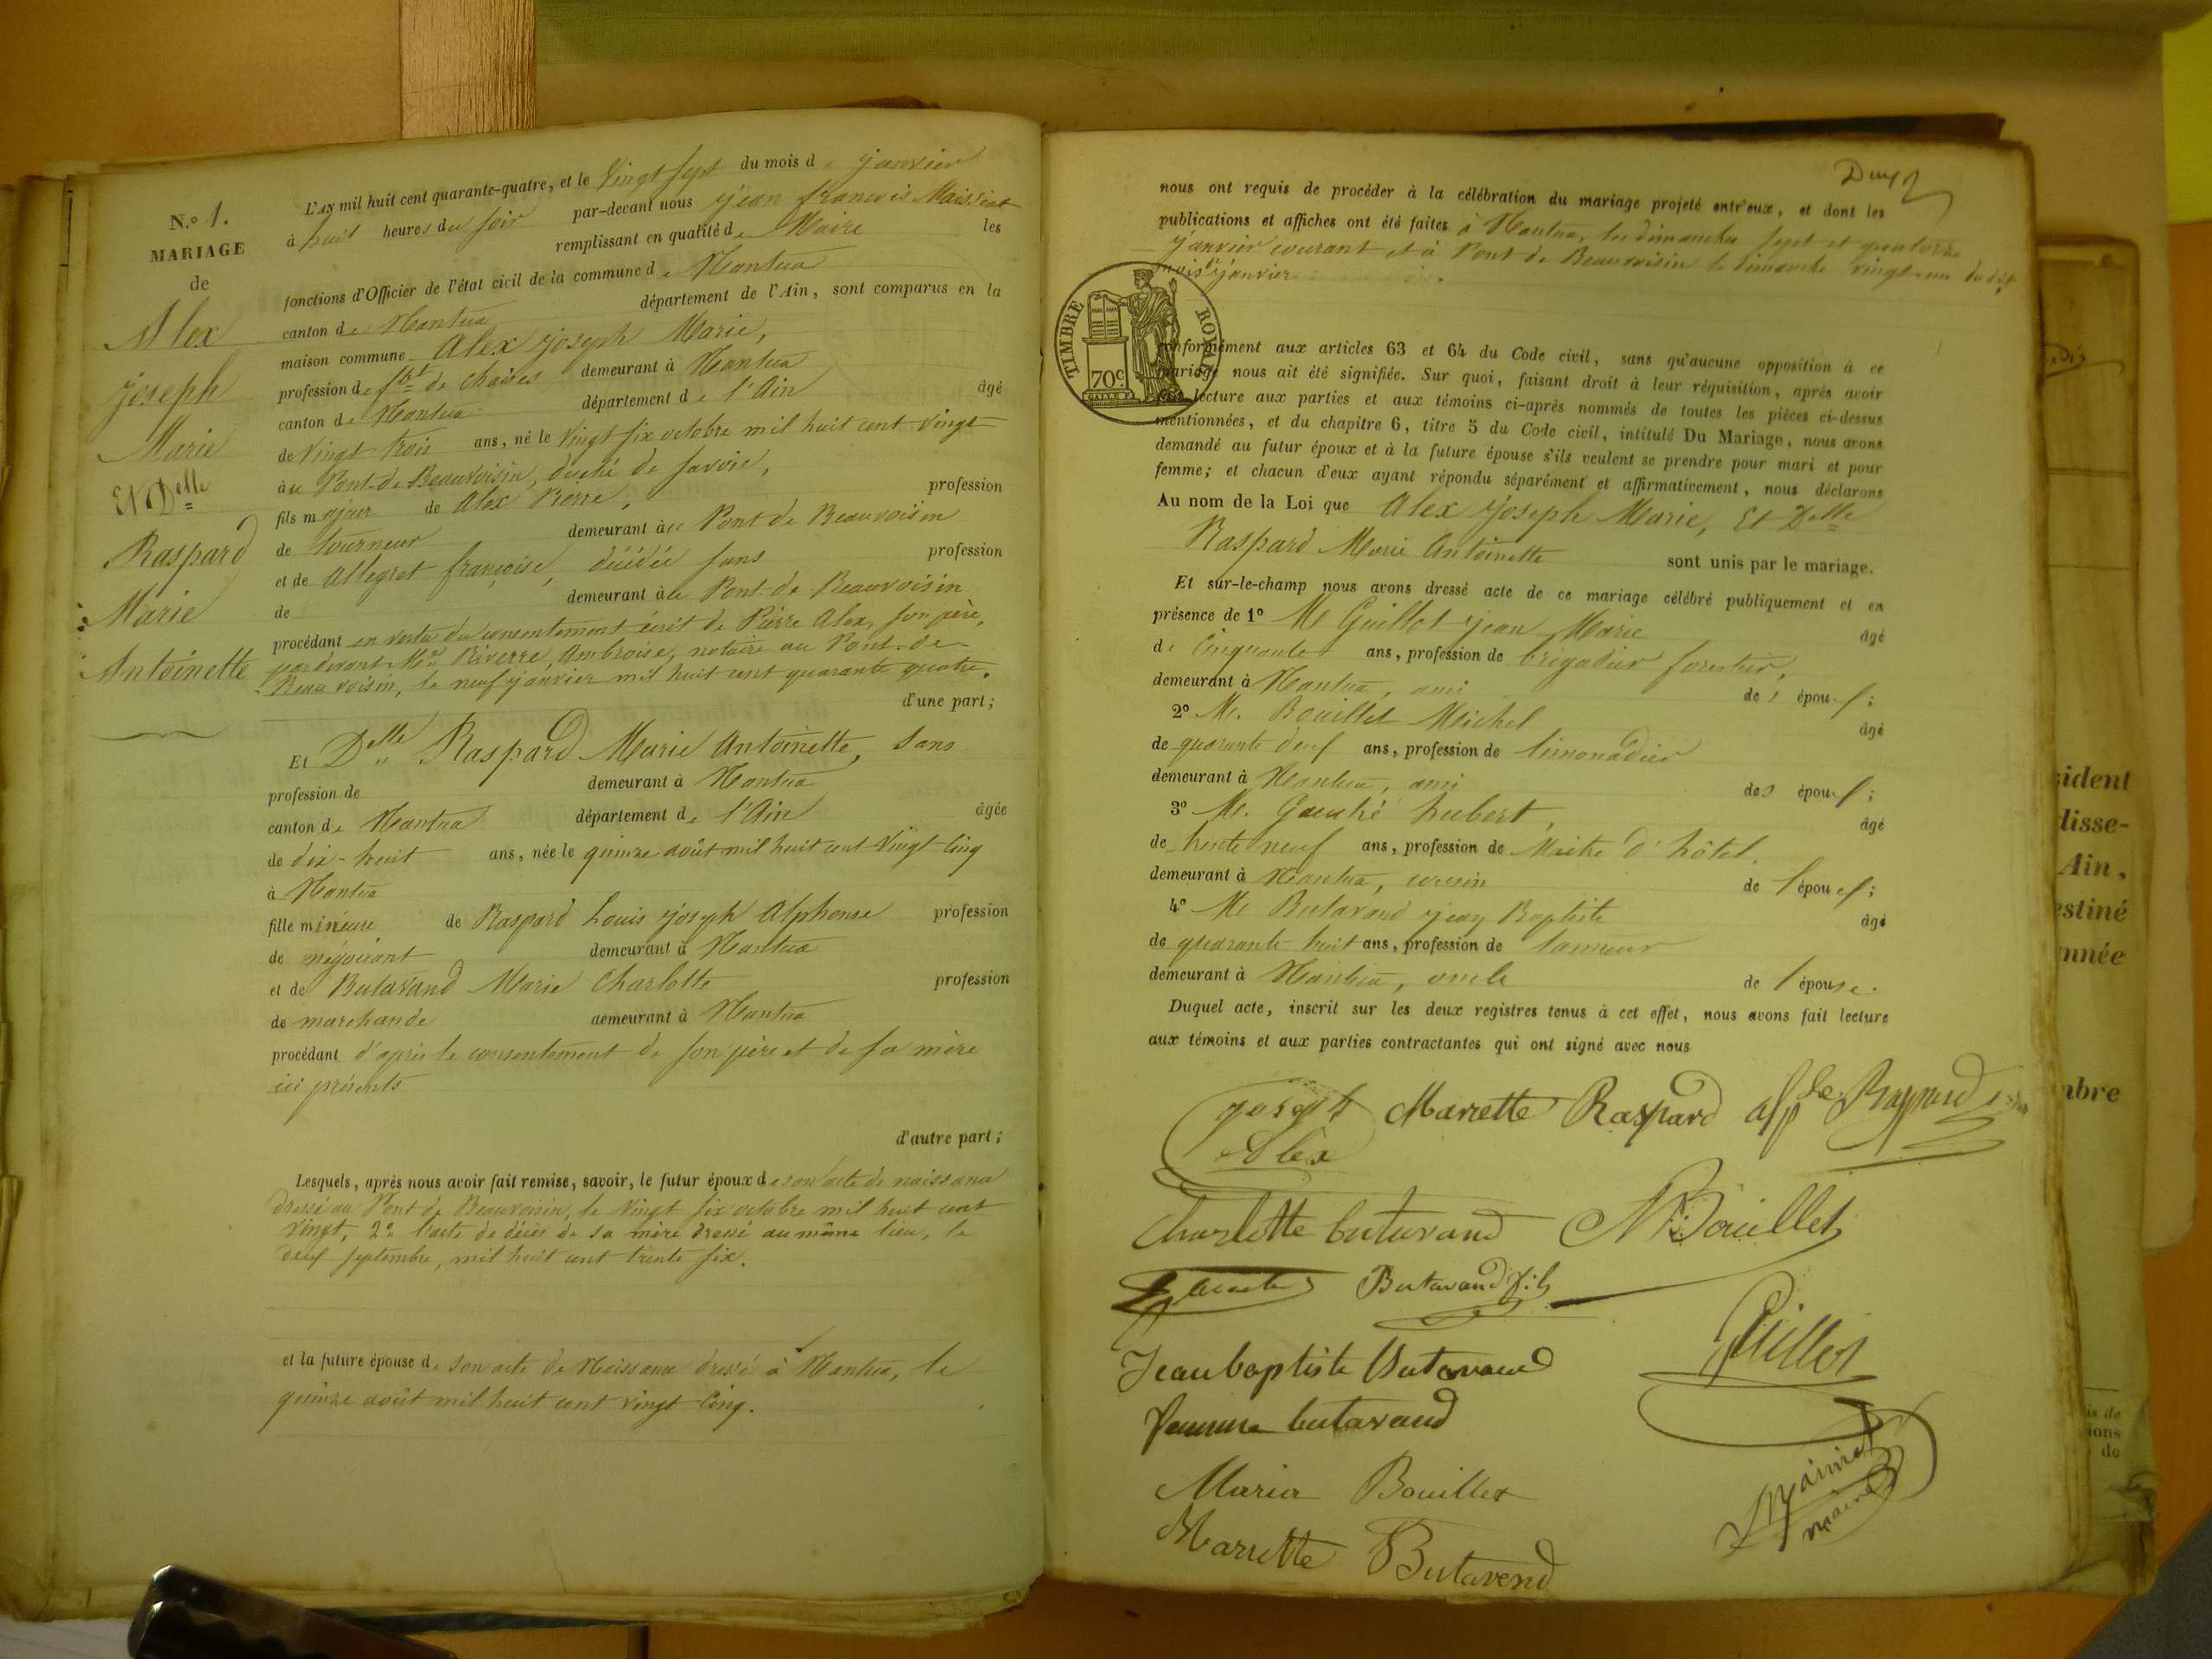 N.º 1.
MARIAGE
de
Alex
joseph
Marie
Et Delle
Raspard
Marie
Antoinette
L'AN mil huit cent quarante-quatre, et le vingt sept du mois de janvier
à huit heures du soir par-devant nous jean francois Maissiat
remplissant en qualité de Maire les
fonctions d'Officier de l'état civil de la commune de Nantua
canton de Nantua département de l'Ain, sont comparus en la
maison commune Alex joseph Marie,
profession de fbt de chaises demeurant à Nantua
canton de Nantua département de l'Ain âgé
de vingt trois ans, né le vingt six octobre mil huit cent vingt
au Pont-de-Beauvoisin, duché de savoie,
fils majeur de Alex Pierre, profession
de tourneur demeurant au Pont de Beauvoisin
et de Allegret françoise, décédée sans profession
de demeurant au Pont-de-Beauvoisin
procédant en vertu du consentement écrit de Pierre Alex, son père,
pardevant Me Riverre, Ambroise, notaire au Pont-de-
Beauvoisin, le neuf janvier mil huit cent quarante quatre.
d'une part;
Et Delle Raspard Marie Antoinette, sans
profession de demeurant à Nantua
canton de Nantua département de l'Ain âgée
de dix-huit ans, née le quinze août mil huit cent vingt cinq
à Nantua
fille mineure de Raspard Louis joseph Alphonse profession
de négociant demeurant à Nantua
et de Butavand Marie Charlotte profession
de marchande demeurant à Nantua
procédant d'après le consentement de son père et de sa mère
ici présents
d'autre part;
Lesquels, après nous avoir fait remise, savoir, le futur époux de son acte de naissance
dressé au Pont de Beauvoisin, le vingt six octobre mil huit cent
vingt, 2º l'acte de décès de sa mère dressé au même lieu, le
neuf septembre, mil huit cent trente six.
et la future épouse de son acte de Naissance dressé à Nantua, le
quinze août mil huit cent vingt cinq.
nous ont requis de procéder à la célébration du mariage projeté entr'eux, et dont les
publications et affiches ont été faites à Nantua, les dimanches sept et quatorze
janvier courant et à Pont de Beauvoisin le dimanche vingt-un du dit
mois de janvier
TIMBRE ROYAL
70c
conformément aux articles 63 et 64 du Code civil, sans qu'aucune opposition à ce
mariage nous ait été signifiée. Sur quoi, faisant droit à leur réquisition, après avoir
lecture aux parties et aux témoins ci-après nommés de toutes les pièces ci-dessus
mentionnées, et du chapitre 6, titre 5 du Code civil, intitulé Du Mariage, nous avons
demandé au futur époux et à la future épouse s'ils veulent se prendre pour mari et pour
femme; et chacun d'eux ayant répondu séparément et affirmativement, nous déclarons
Au nom de la Loi que Alex Joseph Marie, Et Delle
Raspard Marie Antoinette sont unis par le mariage.
Et sur-le-champ nous avons dressé acte de ce mariage célébré publiquement et en
présence de 1º M Guillot jean Marie âgé
de cinquante ans, profession de brigadier forestier,
demeurant à Nantua, ami des époux;
2º M. Bouillet Michel âgé
de quarante ans, profession de limonadier
demeurant à Nantua, ami des époux;
3º M. Gauthé hubert, âgé
de trente neuf ans, profession de Maitre d'hôtel.
demeurant à Nantua, cousin de l'époux;
4º M Butavand jean Baptiste âgé
de quarante huit ans, profession de tanneur
demeurant à Nantua, oncle de l'épouse.
Duquel acte, inscrit sur les deux registres tenus à cet effet, nous avons fait lecture
aux témoins et aux parties contractantes qui ont signé avec nous
joseph Mariette Raspard alpse Raspard
Alex
Charlotte butavand MBouillet
Butavand fils
Jean baptiste Butavand
Guillot
femme butavand
Maria Bouillet
Mariette Butavend
maire
sident
disse-
Ain,
estiné
nnée
mbre
is de
ions
de